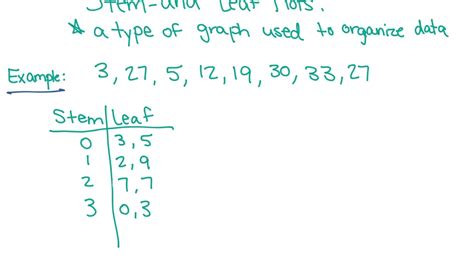 Stem-and Leaf Plots:
* a type of graph used to organize data
Example: 3, 27, 5, 12, 19, 30, 33, 27
Stem Leaf
0 3, 5
1 2, 9
2 7, 7
3 0, 3